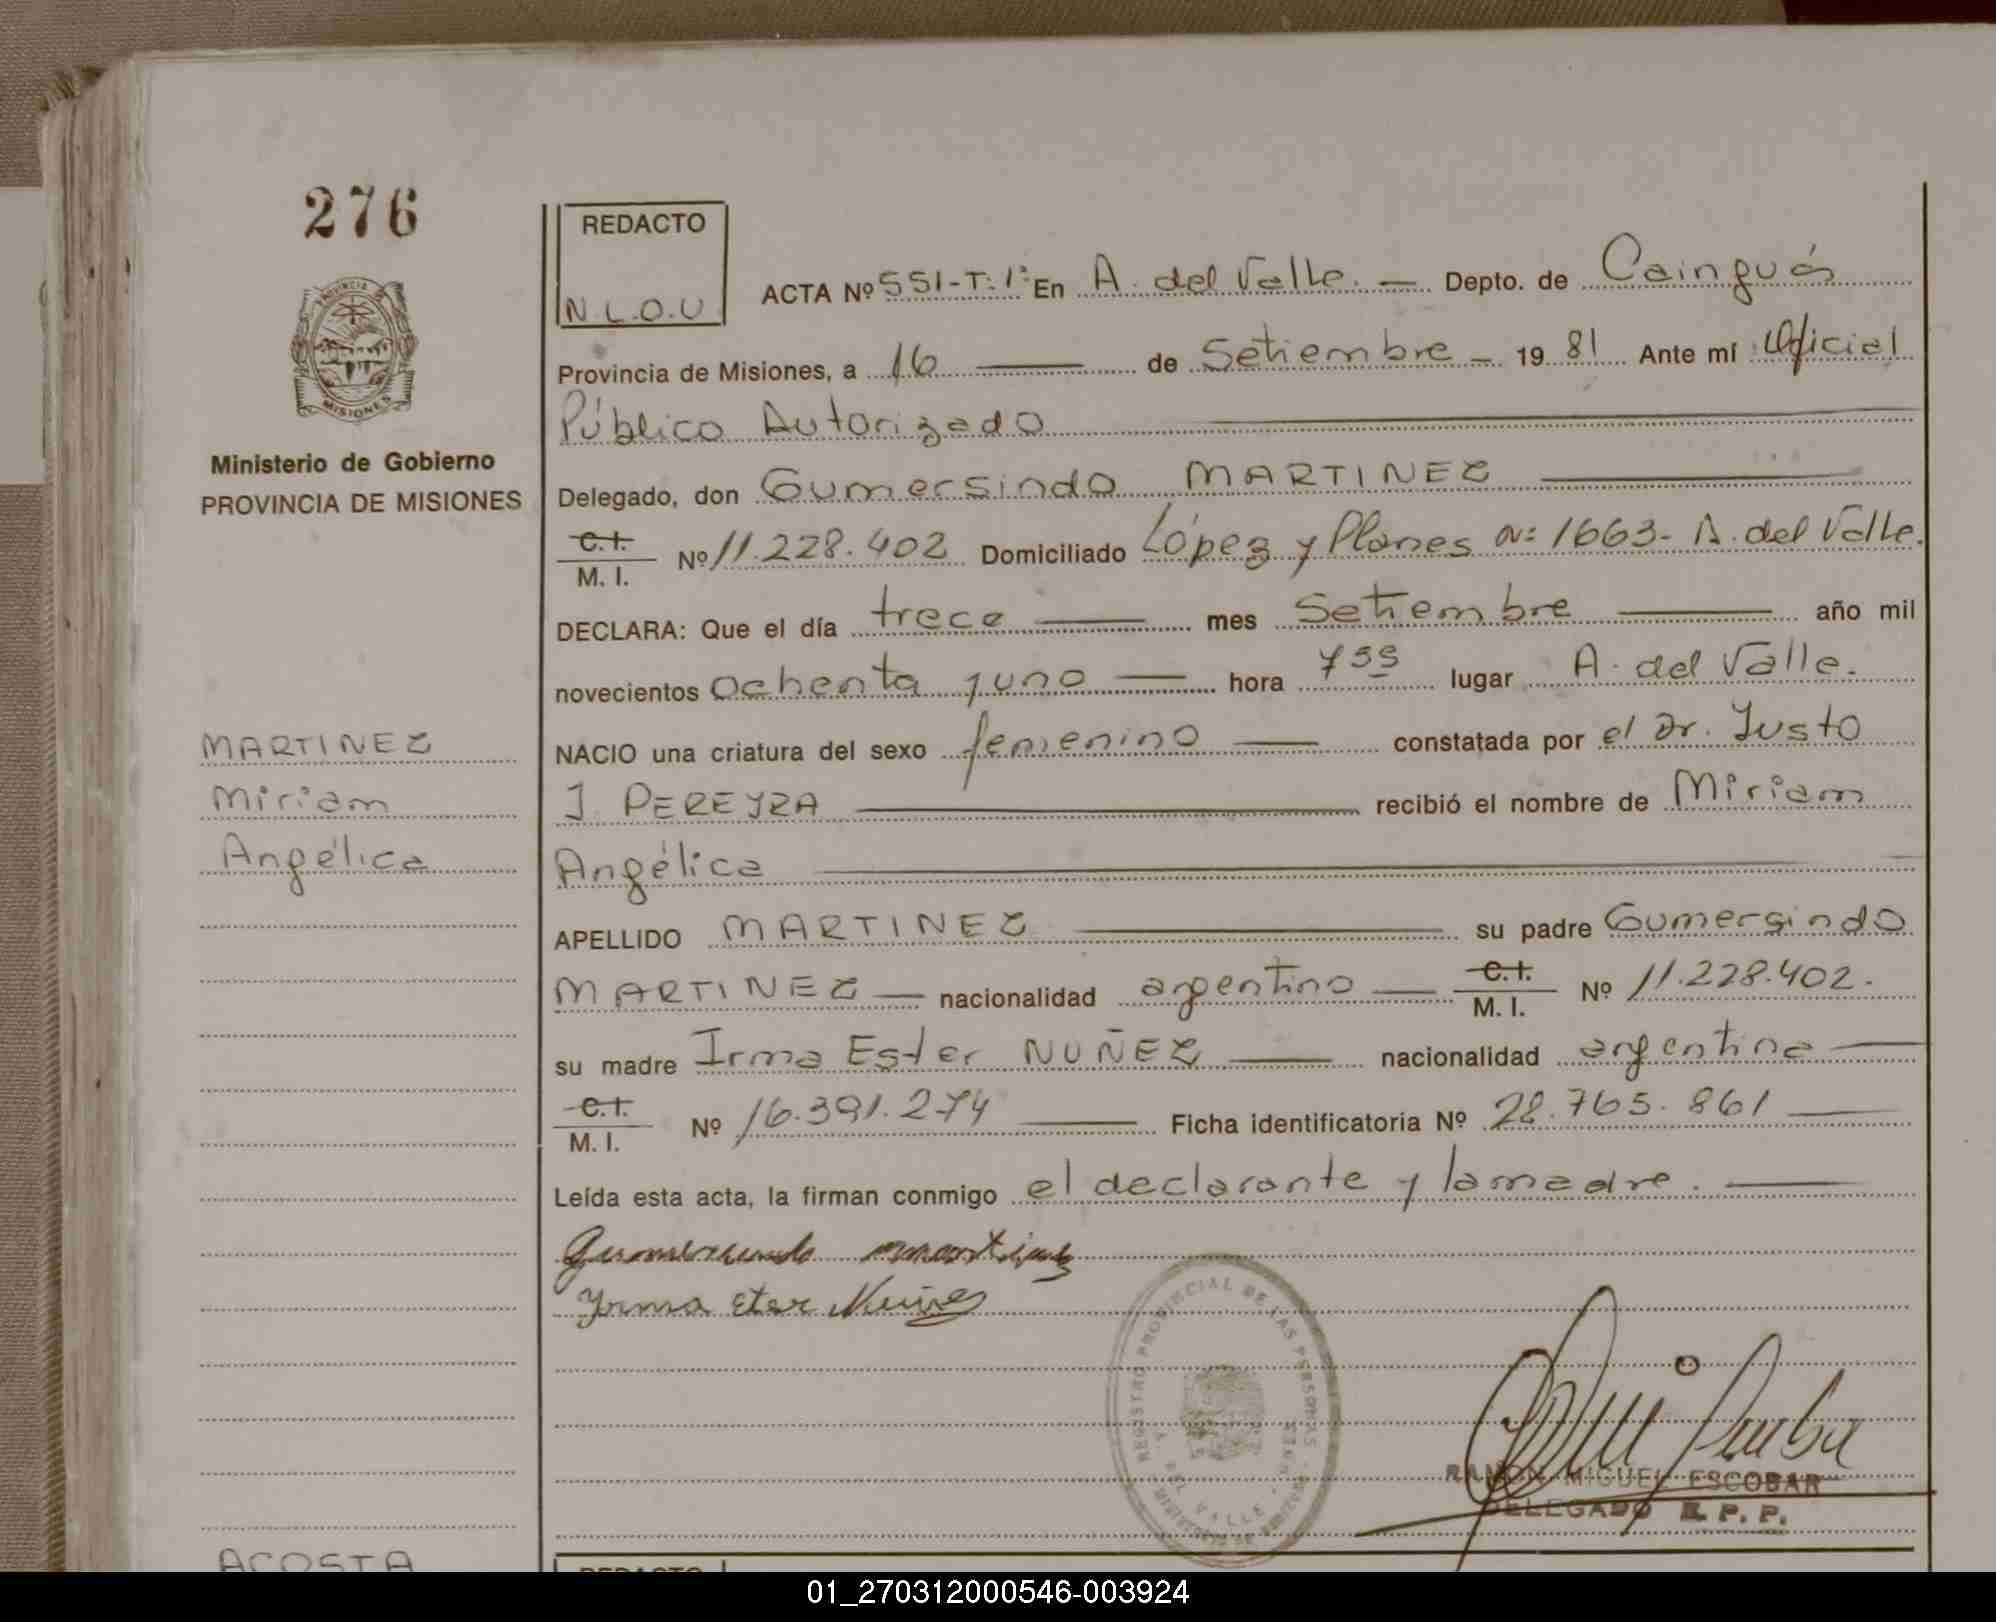 276
PROVINCIA DE
MISIONES
Ministerio de Gobierno
PROVINCIA DE MISIONES
MARTINEZ
Miriam
Angélica
ACOSTA
REDACTO
N.L.O.U
ACTA Nº 551-T:1º En A. del Valle. — Depto. de Cainguás
Provincia de Misiones, a 16 — de Setiembre — 1981 Ante mí Oficial
Público Autorizado
Delegado, don Gumersindo MARTINEZ
C.I.
M. I. Nº 11.228.402 Domiciliado López y Planes Nº 1663- A. del Valle.
DECLARA: Que el día trece — mes Setiembre — año mil
novecientos ochenta y uno — hora 7 35 lugar A. del Valle.
NACIO una criatura del sexo femenino — constatada por el Dr. Justo
J. PEREYRA — recibió el nombre de Miriam
Angélica
APELLIDO MARTINEZ — su padre Gumersindo
MARTINEZ — nacionalidad argentino — C.I.
M. I. Nº 11.228.402.
su madre Irma Ester NUÑEZ — nacionalidad argentina —
C.I.
M. I. Nº 16.391.274 — Ficha identificatoria Nº 28.765.861 —
Leída esta acta, la firman conmigo el declarante y la madre. —
Gumersindo Martinez
Yrma Eter Nuñes
REGISTRO PROVINCIAL DE LAS PERSONAS
DEL VALLE
RAMON MIGUEL ESCOBAR
DELEGADO R. P. P.
REDACTO
01_270312000546-003924